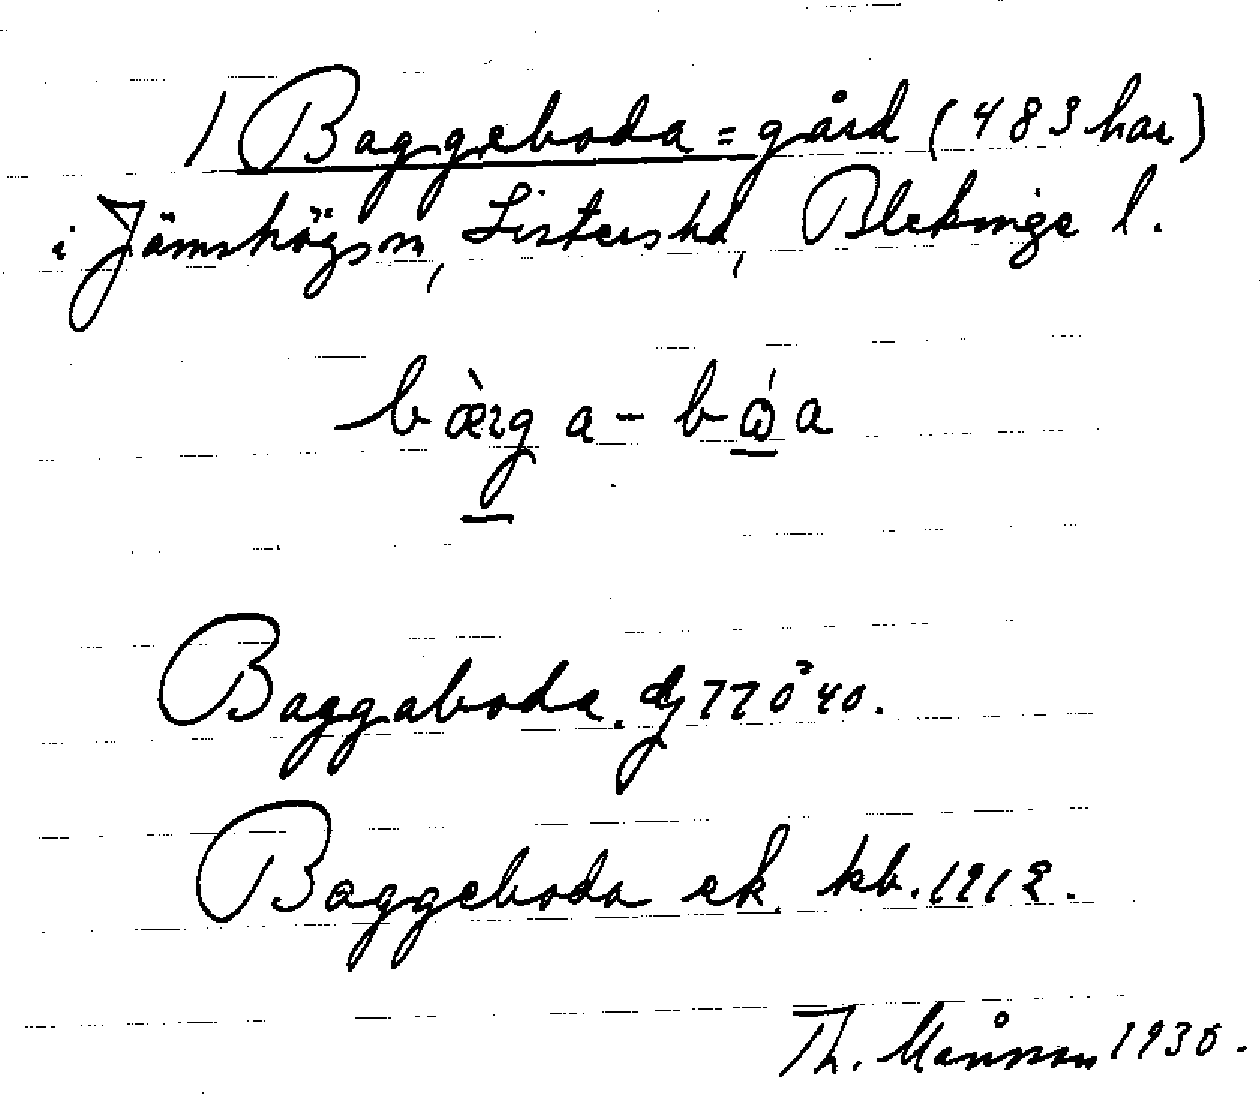 1 Baggeboda = gård (483 har)
i Jämshögs sn, Listers hd, Blekinge l.
bæ̀rga-bɷ́a
Baggaboda. dy 77 ö 40.
Baggeboda ek. kb. 1212.
Th. Månsson 1930.